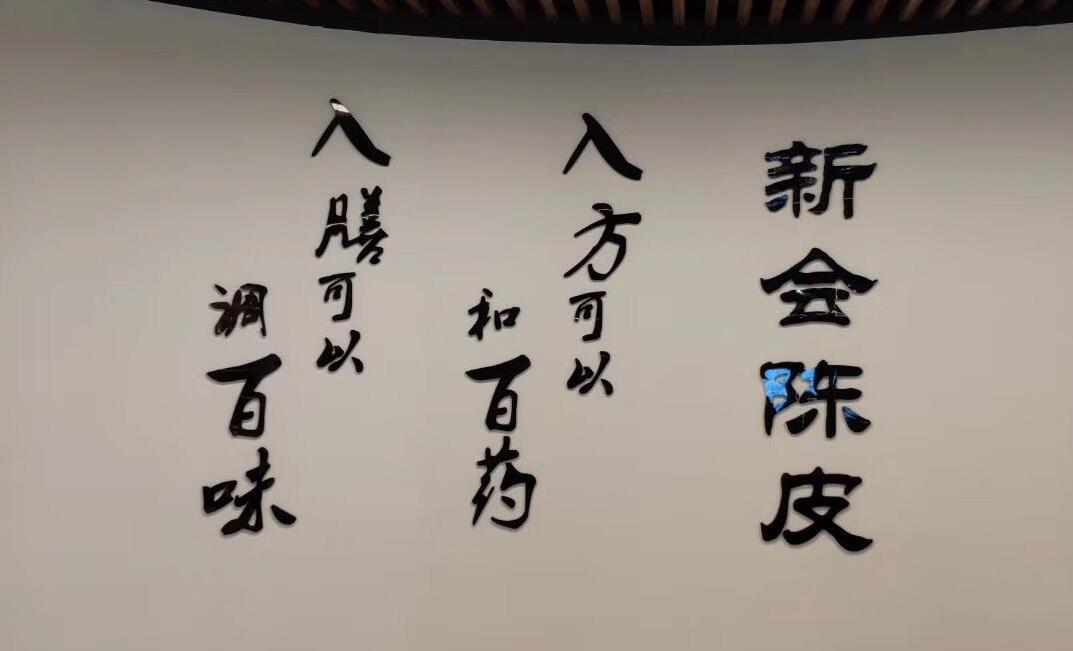 新会陈皮
入方可以
和百药
入膳可以
调百味